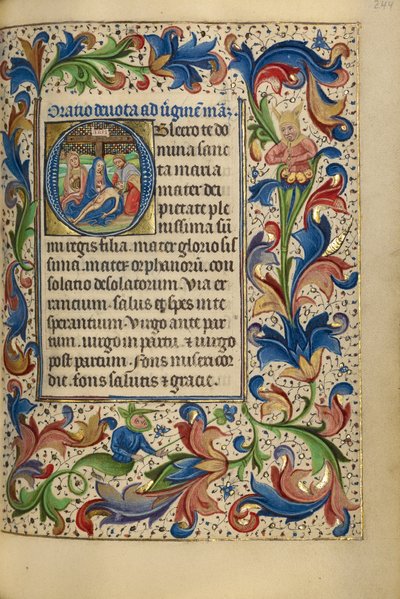 244
Oratio deuota ad v̄ginē mar̄
Obsecro te do
mina sanc
ta maria
mater dei
pietate ple
nissima sū
mi regis filia . mater glorio sis
sima . mater orphanorū . con
solatio desolatorum . Via er
rancium . salus et spes in te
sperantium . Virgo ante par
tum . uirgo in partu . et uirgo
post partum . Fons miseri cor
die . fons salutis et gracie .